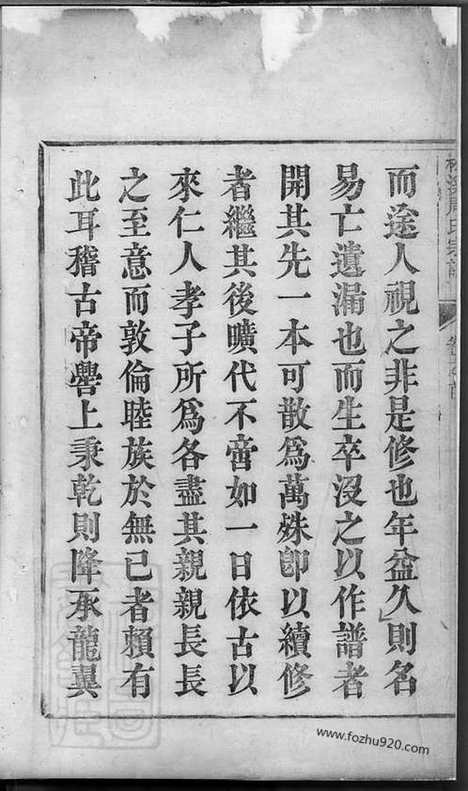 而途人視之非是修也年益久則名
易亡遺漏也而生卒沒之以作譜者
開其先一本可散爲萬殊卽以續修
者繼其後曠代不啻如一日依古以
來仁人孝子所爲各盡其親親長長
之至意而敦倫睦族於無已者賴有
此耳稽古帝嚳上秉乾則降承龍翼
www.fozhu920.com